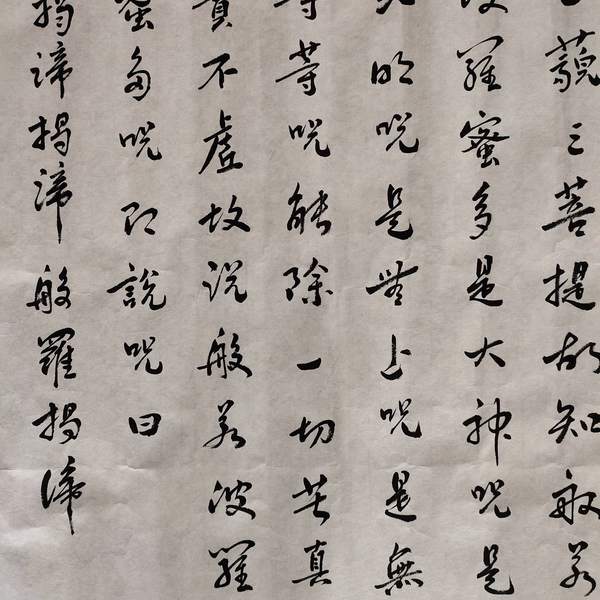 藐三菩提故知般若
波羅蜜多是大神呪是
明呪是無上呪是無
等等呪能除一切苦真
實不虛故説般若波羅
蜜多呪即説呪曰
揭諦揭諦般羅揭諦